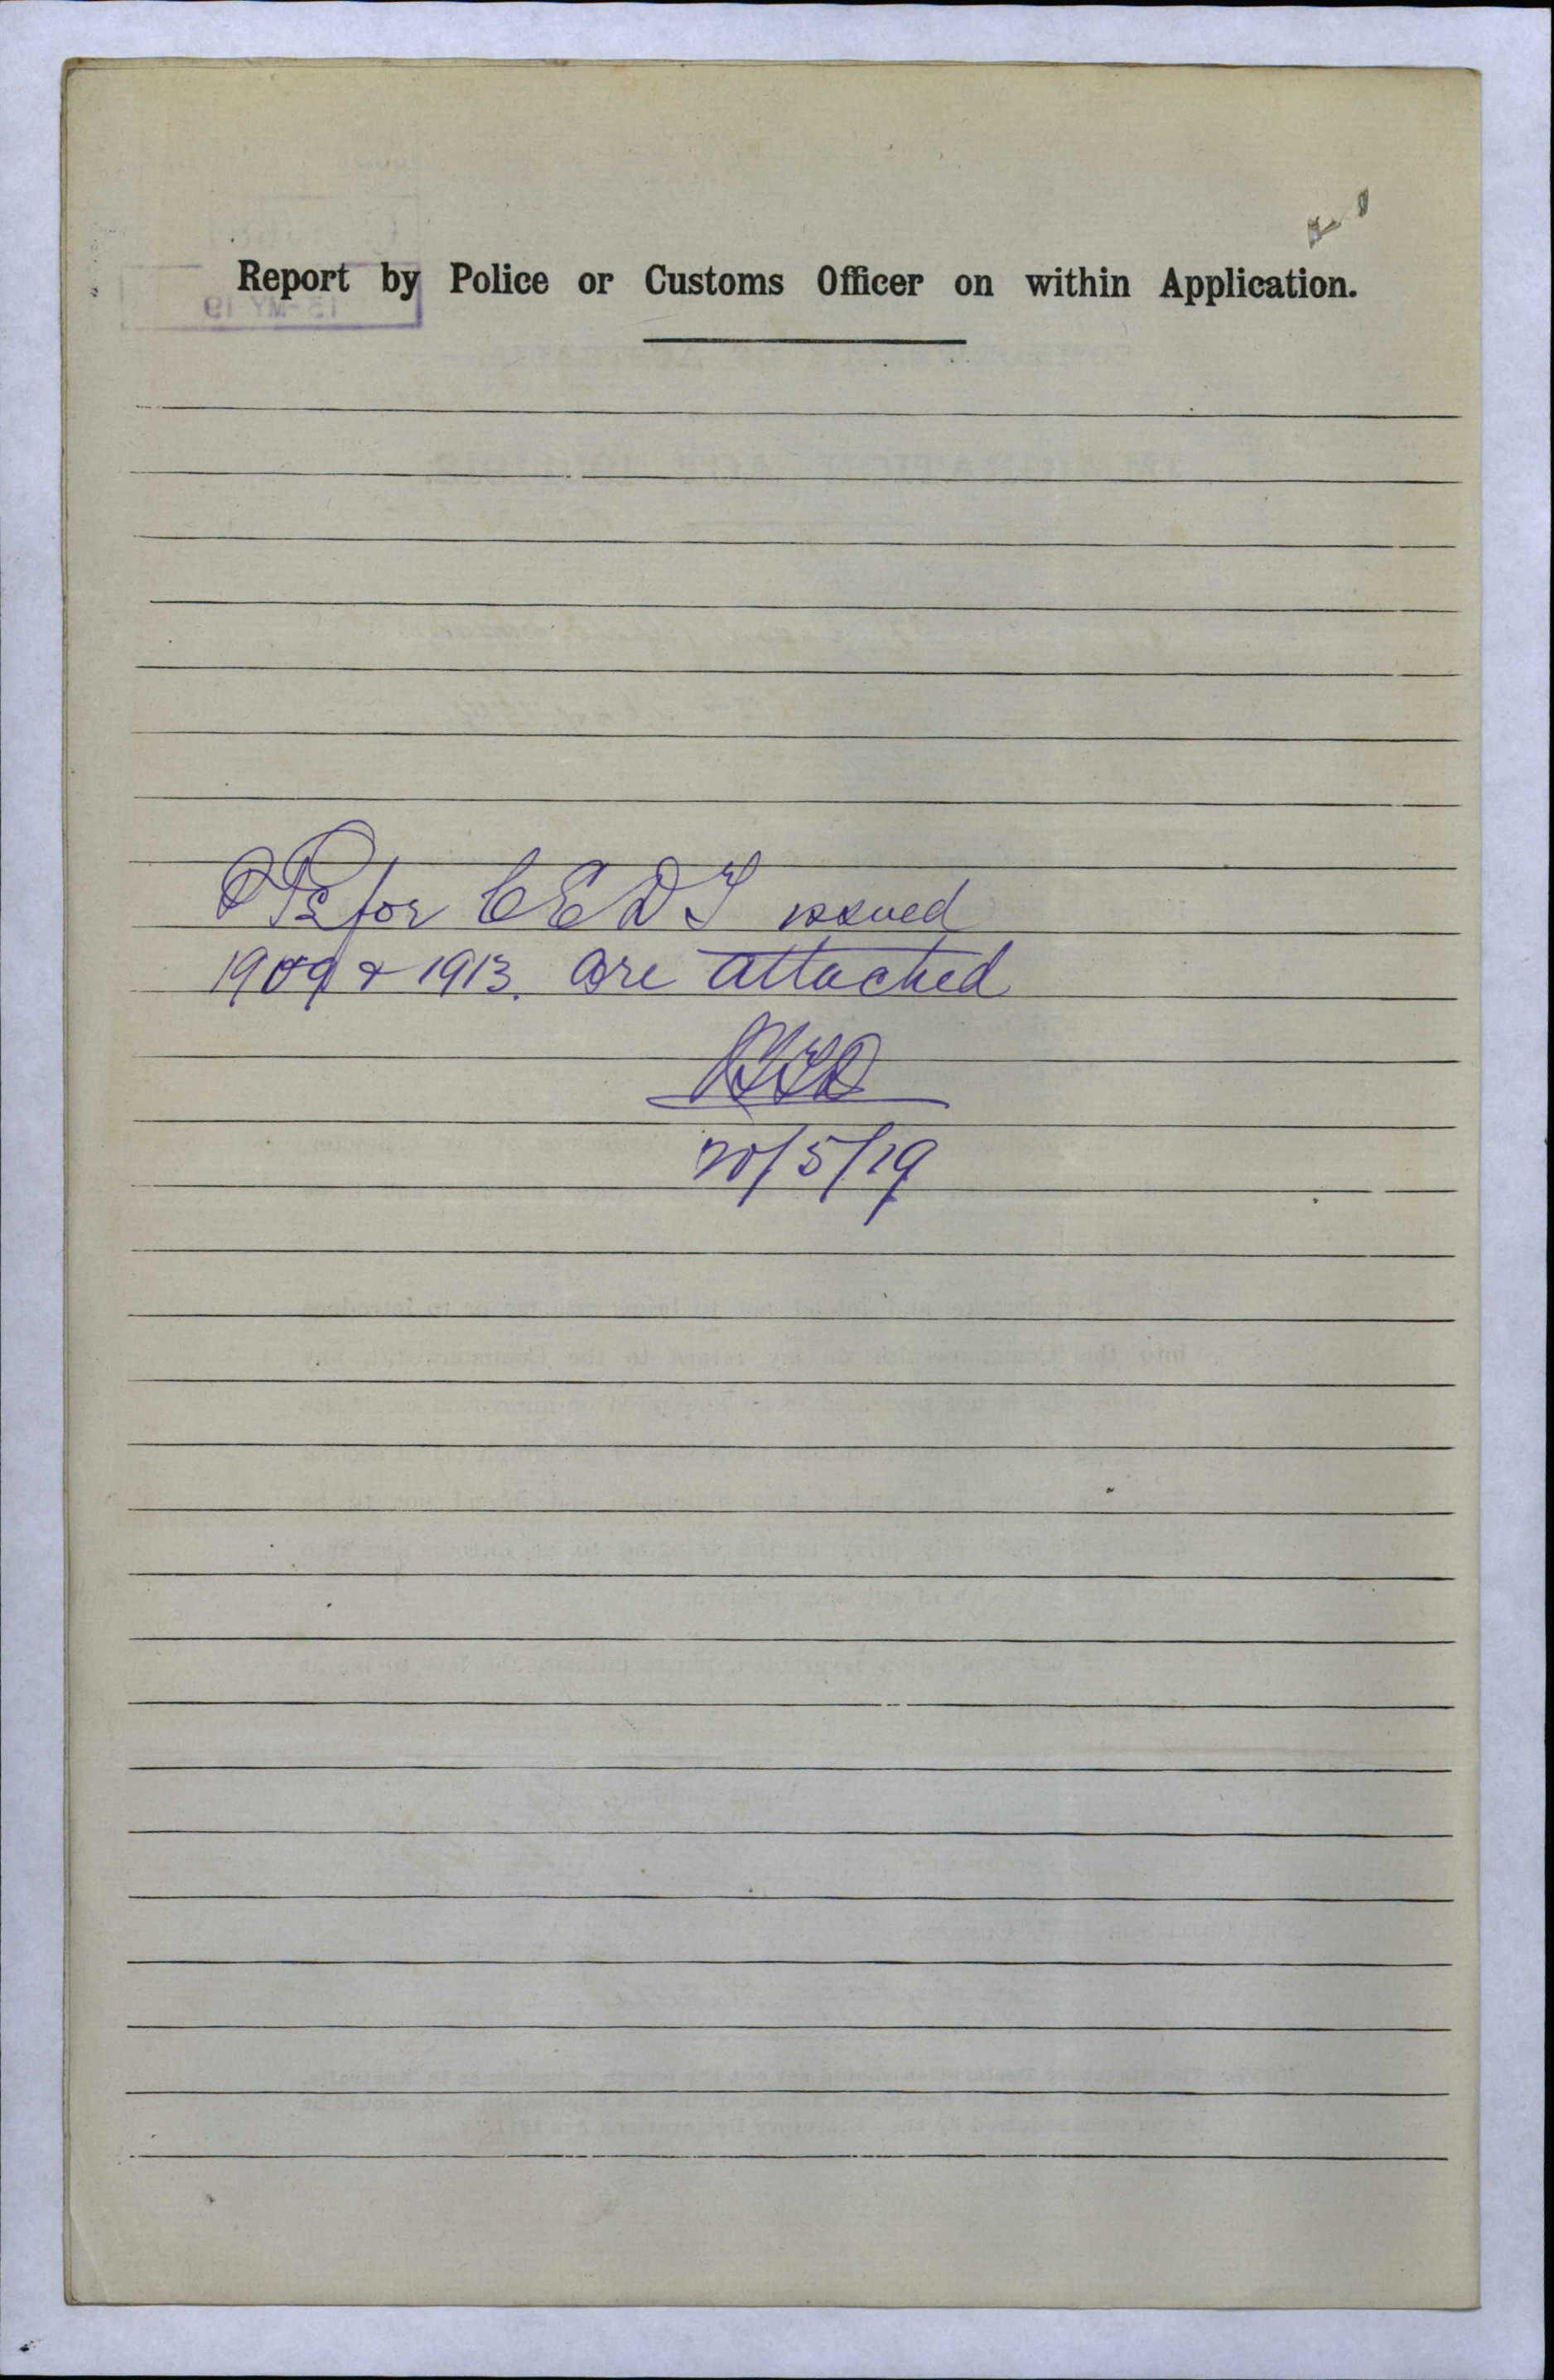 Report by Police or Customs Officer on within Application.
Ps for CEDT issued
1909 & 1913. are attached
20/5/19